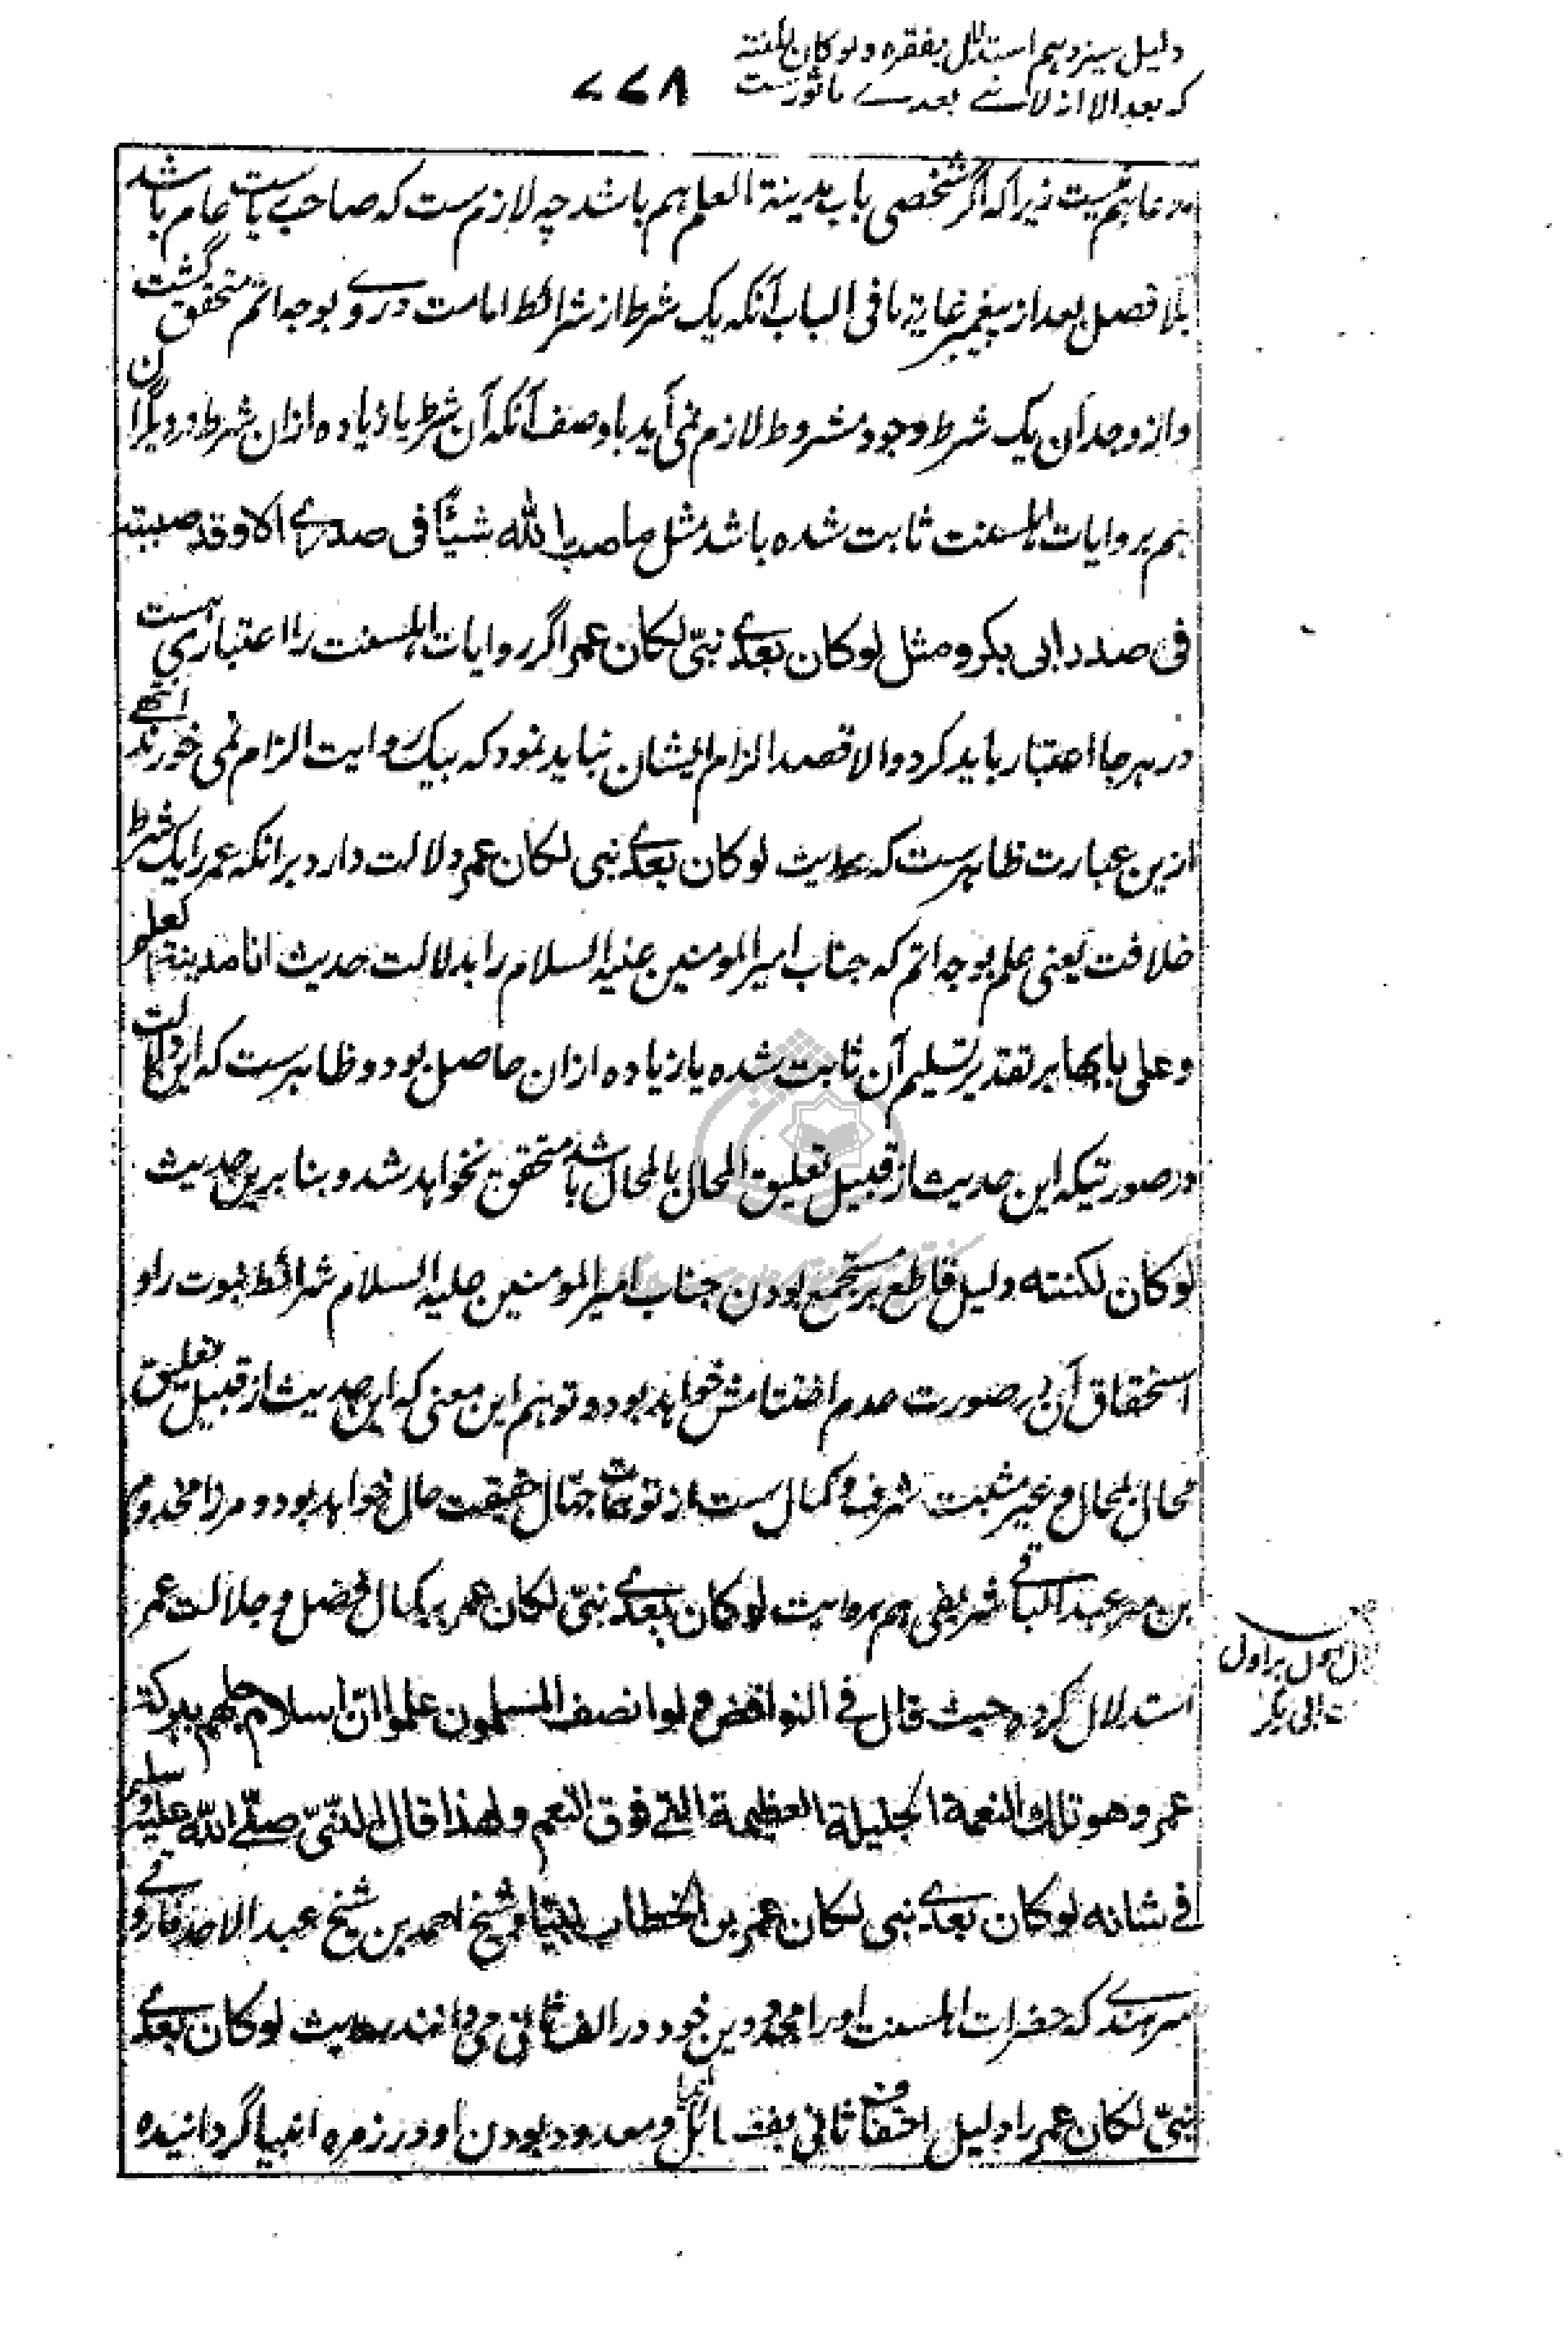 دلیل سیزدهم استدلال بفقره ولو کان لکنته
که بعد الا انه لا نبی بعدے ماثورست
۷۷۸
مدعا هم نیست زیرا که اگر شخصی باب مدینة العلم هم باشد چه لازم ست که صاحب ریاست عام باشد
بلا فصل بعد از پیغمبر غایة ما فی الباب آنکه یک شرط از شرائط امامت در وے بوجه اتم متحقق گشت
و از وجدان یک شرط وجود مشروط لازم نمی آید با وصف آنکه آن شرط یا زیاده ازان شرط در دیگران
هم بروایات اهلسنت ثابت شده باشد مثل ما صب الله شیئا فی صدرے الا وقد صببته
فی صدر ابی بکر و مثل لو کان بعدے نبیّ لکان عمر اگر روایات اهلسنت را اعتباری هست
در هر جا اعتبار باید کرد و الا قصد الزام ایشان نباید نمود که بیک روایت الزام نمی خورند انتهی
ازین عبارت ظاهرست که حدیث لو کان بعدے نبی لکان عمر دلالت دارد بر انکه عمر را یک شرط
خلافت یعنی علم بوجه اتم که جناب امیر المومنین علیه السلام را بدلالت حدیث انا مدینة العلم
و علی بابها بر تقدیر تسلیم آن ثابت شده یا زیاده ازان حاصل بود و ظاهرست که این دلالت
در صورتیکه این حدیث از قبیل تعلیق المحال بالمحال باشد متحقق نخواهد شد و بنا برین حدیث
لو کان لکنته دلیل قاطع بر مستجمع بودن جناب امیر المومنین علیه السلام شرائط نبوت را و
استحقاق آن بر صورت عدم اختتامش خواهد بود و توهم این معنی که این حدیث از قبیل تعلیق
محال بمحال و غیر مثبت شرف و کمال ست از توهمات جهّال حقیقت حال خواهد بود و مرزا مخدوم
بن میر عبد الباقی شریفی هم بروایت لو کان بعدے نبیّ لکان عمر بر کمال فضل و جلالت عمر
استدلال کرده حیث قال فی النواقض ولو انصف المسلمون علموا انّ اسلامهم ببرکة
عمر وهو تلك النعمة الجلیلة العظیمة التی فوق النعم ولهذا قال النّبیّ صلّی اللّٰه علیه وسلم
فی شانه لو کان بعدے نبی لکان عمر بن الخطاب و شیخ احمد بن شیخ عبد الاحد فاروقی
سرهندے که حضرات اهلسنت او را مجدد دین خود در الف ثانی می دانند حدیث لو کان بعدے
نبیّ لکان عمر را دلیل ثانی بفضائل انبیا و معدود بودن او در زمره انبیا گردانیده